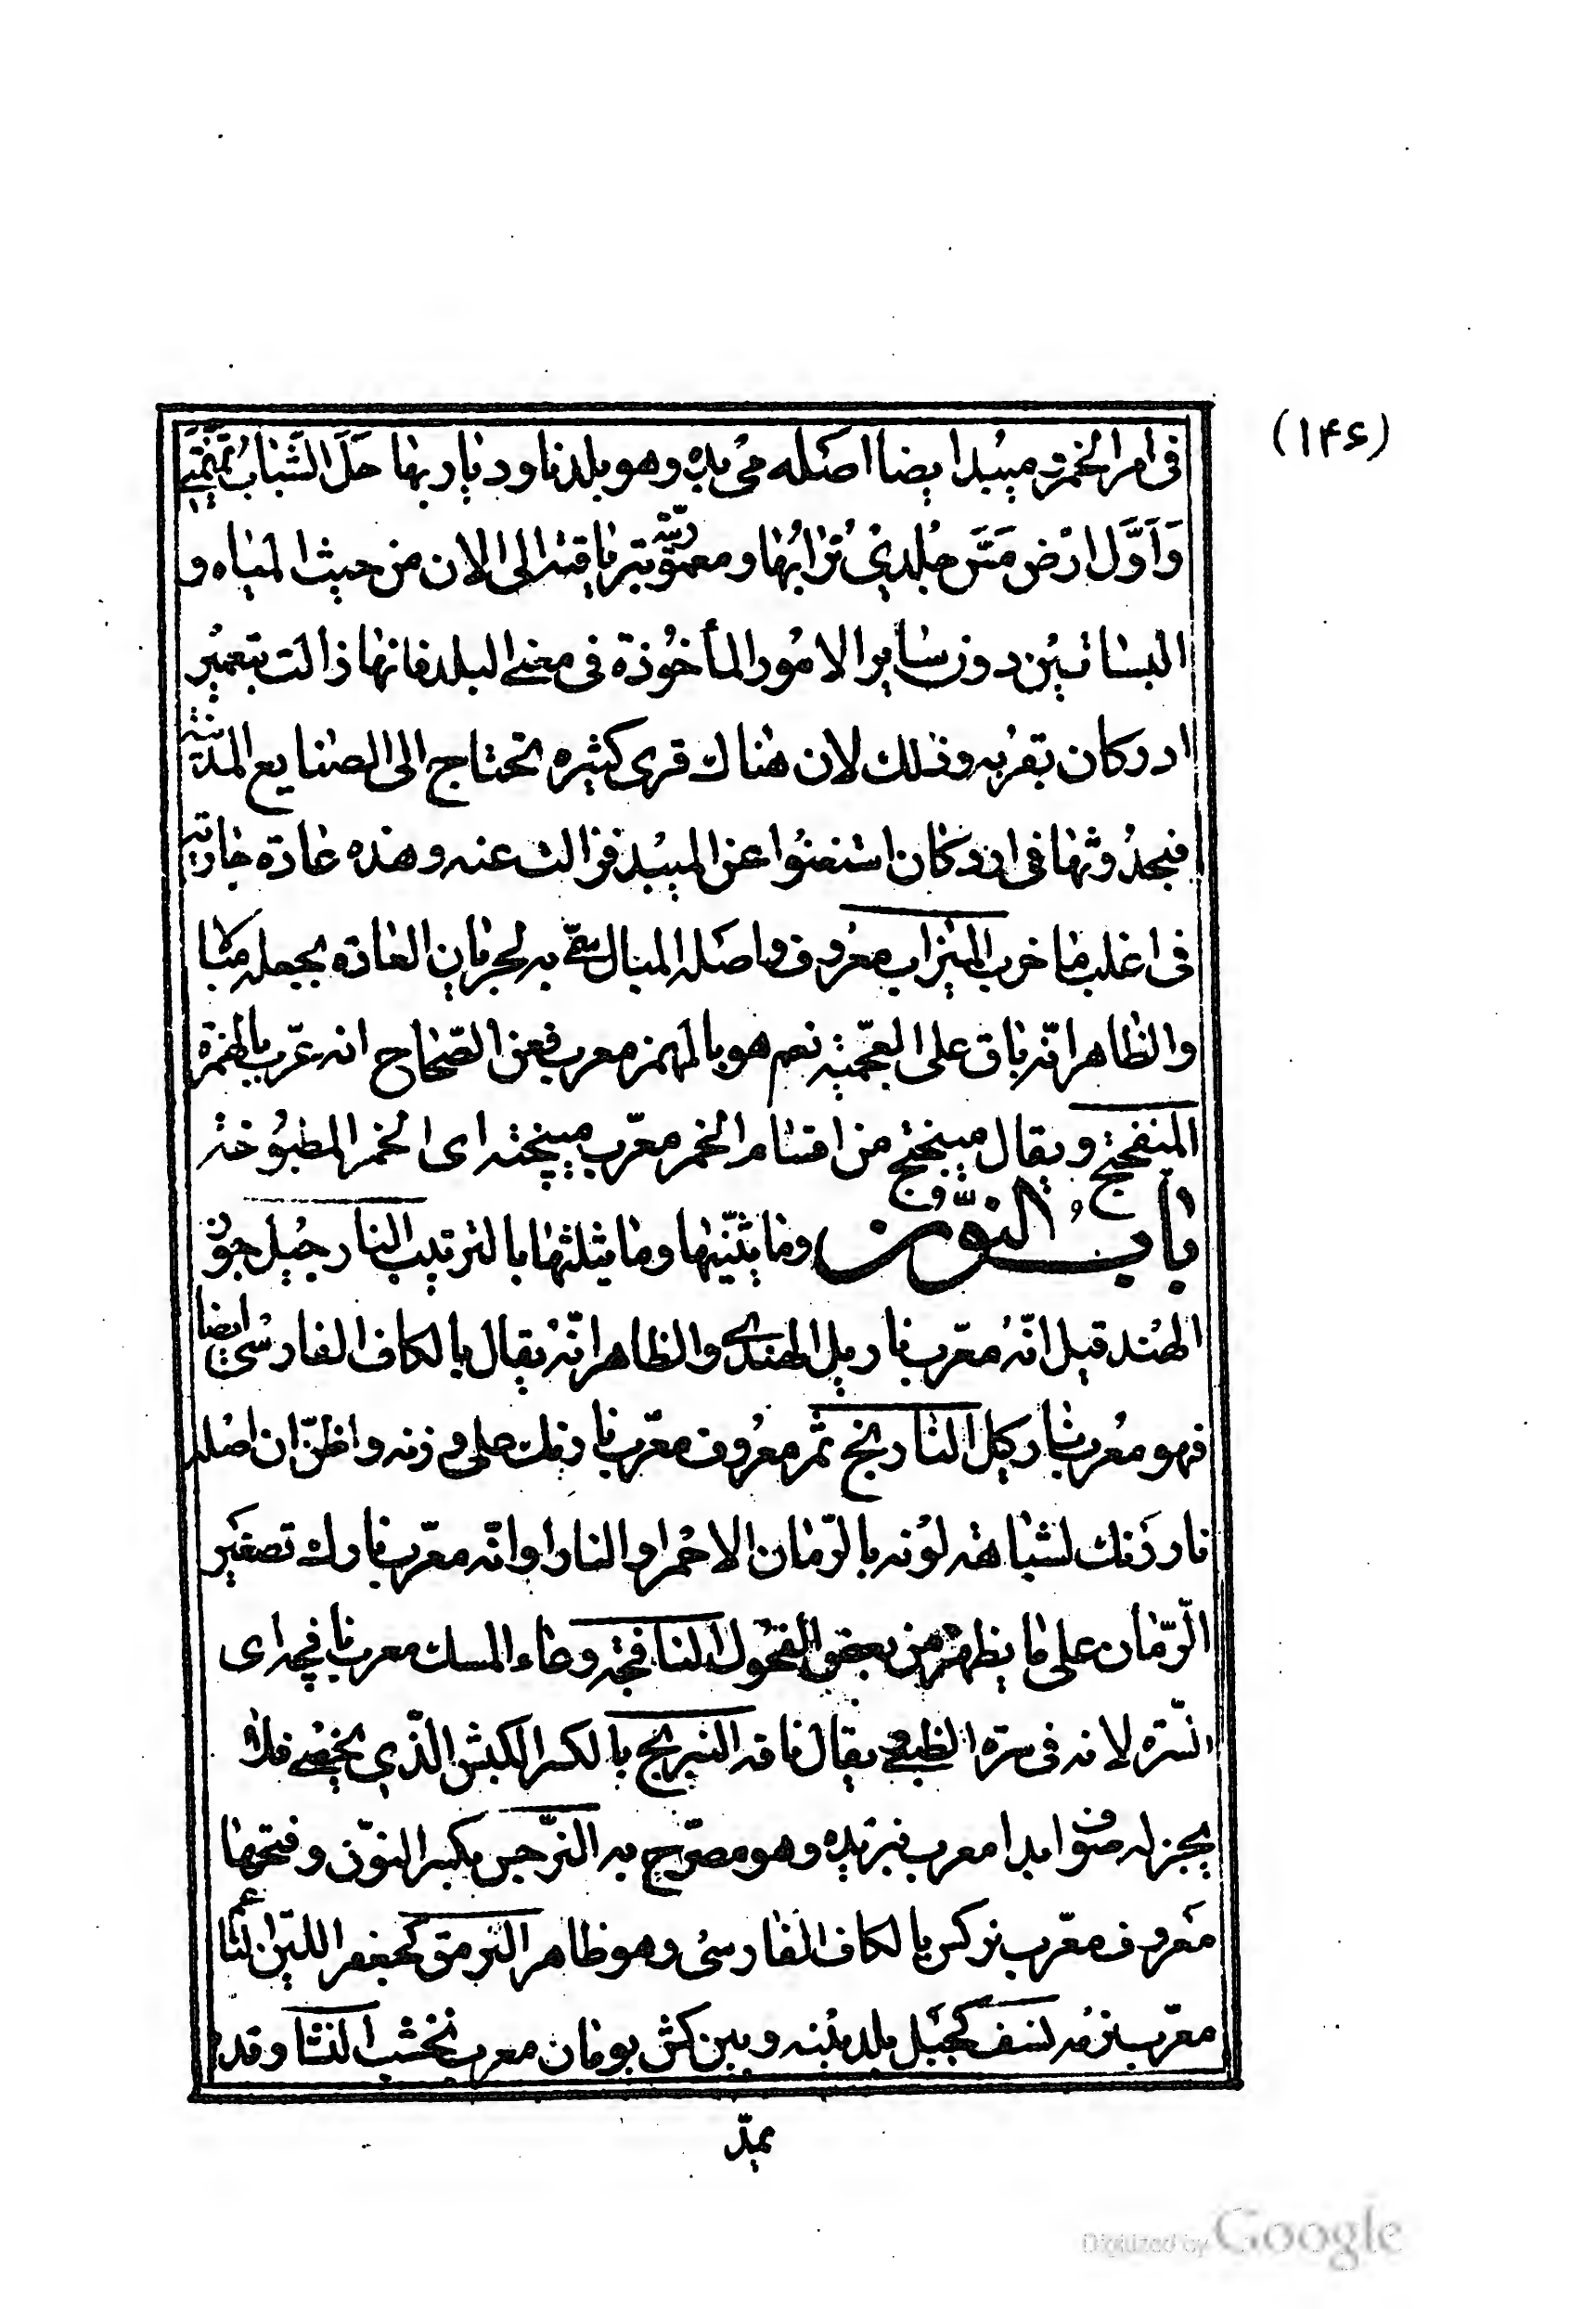 (۱۴۶)
فى امر الخمر و ميبد ايضا اصله مى بده وهو بلدنا و ديار بها حَلَّ الشَّبابُ تميمتى
وَ اَوَّل ارْض مَسَّ جِلْدِىْ تُرابُها و معموريته باقية الى الان من حيث المياه و
البساتين دون ساير الامور المأخوذة فى معنى البلد فانها زالت بتعمير
اردكان بقربه وذلك لان هناك قرى كثيره تحتاج الى الصنايع المدنية
فبحدوثها فى اردكان استغنوا عن الميبد فزالت عنه وهذه عادة جارية
فى اغلب ما خرب الميزاب معروف واصله المبال سمّى به لجريان العادة بجعله مبالا
والظاهر انّه باق على العجميّة نعم هو بالهمز معرب فعن الصّحاح انه عرّب بالهمزة
الميفختج ويقال ميبختج من اقسام الخمر معرّب ميپخته اى الخمر المطبوخة
باب النّون وما يثنّيها وما يثلثها بالترتيب النارجيل جوز
الهند قيل انّه معرّب ناريل الهندى والظاهر انّه يقال بالكاف الفارسى ايضا
فهو معرب ناركيل النارنج ثمر معروف معرّب نارنك على وزنه واظنّ ان اصله
نار رنك لشباهة لونه بالرّمان الاحمر او النار او انّه معرّب نارك تصغير
الرّمان على ما يظهر من بعض الفحول النافجة وعاء المسك معرب نافچه اى
السّرة لانه فى سرة الظبى يقال نافه النبريج بالكسر الكبش الّذي يخصى فلا
يجز له صوف ابدا معرب نبريده وهو مصرّح به النّرجس بكسر النّون وفتحها
معروف معرّب نركس بالكاف الفارسى وهو ظاهر النرمق كجعفر الليّن النّاعم
معرّب نرمه نسف كجبل بلد بينه وبين كش يومان معرب نخشب النشا وقد
يمدّ
Digitized by Google